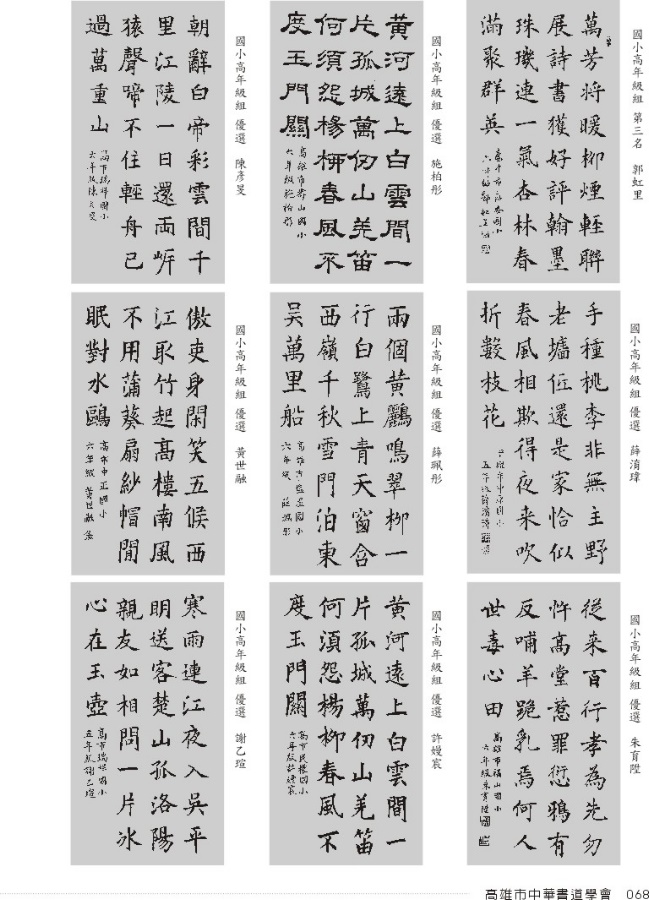 國小高年級組 第三名 郭虹里
萬芳将暖柳煙輕聯
展詩書獲好評翰墨
珠璣連一氣杏林春
滿聚群英
國小高年級組 優選 施柏彤
黃河遠上白雲間一
片孤城萬仞山羌笛
何須怨楊柳春風不
度玉門關
高雄市壽山國小
六年級施柏彤
國小高年級組 優選 陳彥旻
朝辭白帝彩雲間千
里江陵一日還兩岸
猿聲啼不住輕舟已
過萬重山
高市瑞坪國小
國小高年級組 優選 薛淯瑋
手種桃李非無主野
老墻低還是家恰似
春風相欺得夜来吹
折數枝花
國小高年級組 優選 薛珮彤
兩個黃鸝鳴翠柳一
行白鷺上青天窗含
西嶺千秋雪門泊東
吳萬里船
國小高年級組 優選 黃世融
傲吏身閑笑五候西
江取竹起高樓南風
不用蒲葵扇紗帽閒
眠對水鷗
高雄中正國小
六年級 黃世融
國小高年級組 優選 朱育陞
從来百行孝為先勿
忤高堂惹罪愆鴉有
反哺羊跪乳焉何人
世毒心田
高雄市福山國小
六年級朱育陞
國小高年級組 優選 許嫚宸
黃河遠上白雲間一
片孤城萬仞山羌笛
何須怨楊柳春風不
度玉門關
高市民權國小
六年級許嫚宸
國小高年級組 優選 謝乙瑄
寒雨連江夜入吳平
明送客楚山孤洛陽
親友如相問一片冰
心在玉壺
五年級謝乙瑄
高雄市中華書道學會 068